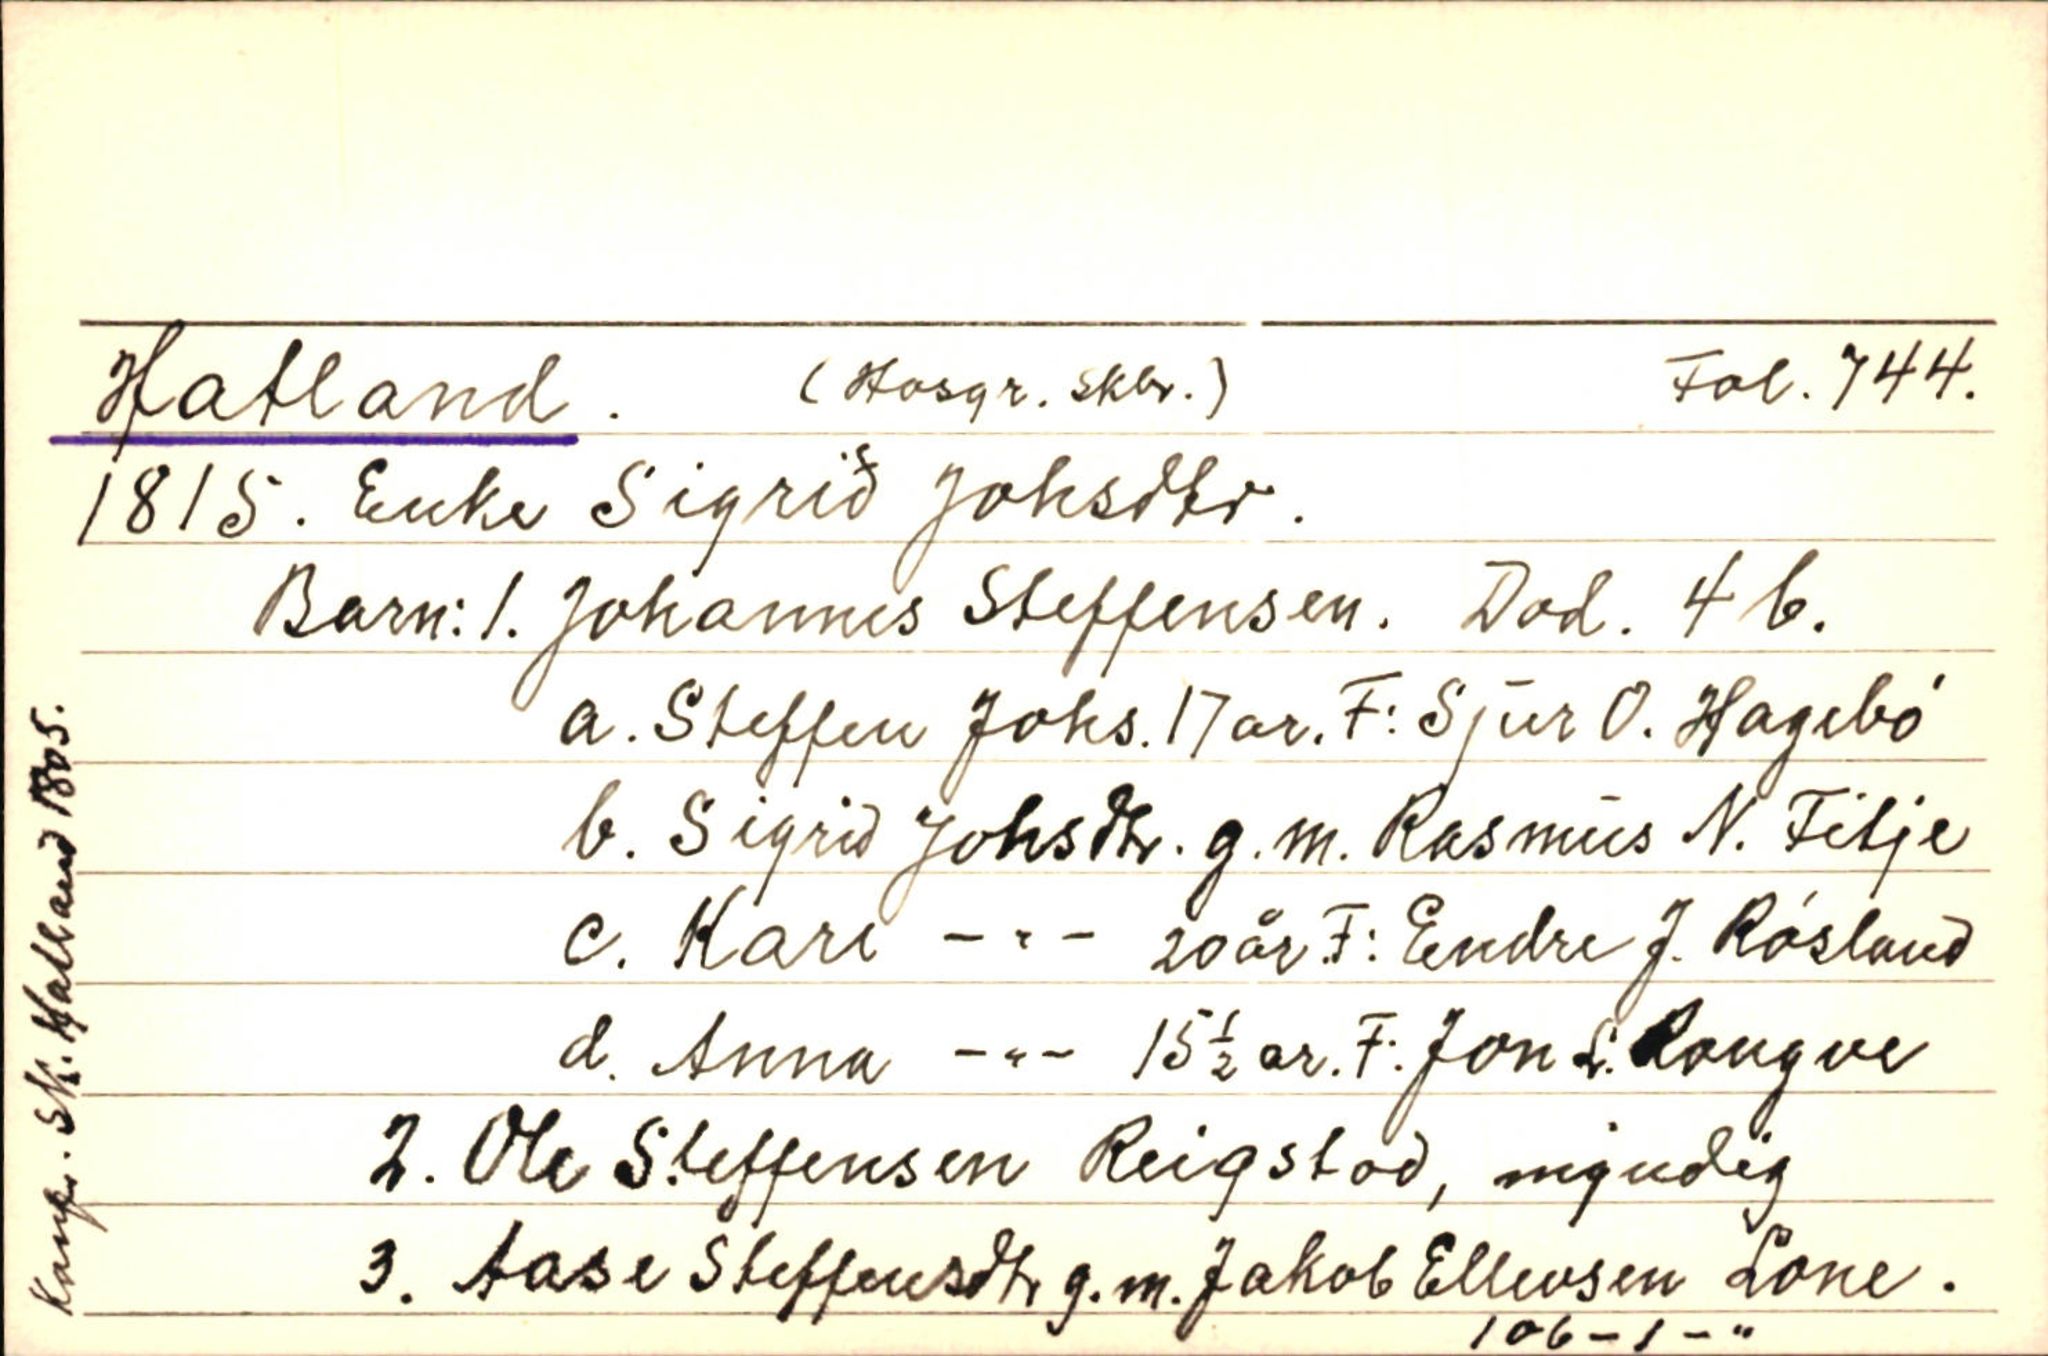 Hatland. (Hosgr. Skbr.) Fol. 744.
1815. Enke Sigrid Johsdtr.
Barn: 1. Johannes Steffensen. Død. 4 b.
a. Steffen Johs. 17 år. F: Sjur O. Hagebø
b. Sigrid Johsdtr. g. m. Rasmus N. Fitje
c. Kari -"- 20 år F: Endre J. Røsland
d. Anna -"- 15½ år. F: Jon L. Rongve
2. Ole Steffensen Reigstad, myndig
3. Aase Steffensdtr g. m. Jakob Ellevsen Lone.
106-1-"
Konf. Sk. Hatland 1805.